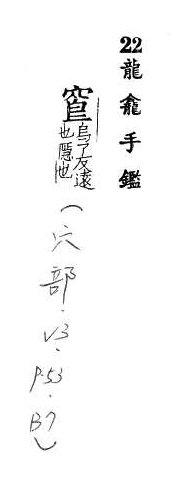 22 龍龕手鑑
窅
烏了反遠
也隱也
(穴部.V3.P.53.B7)